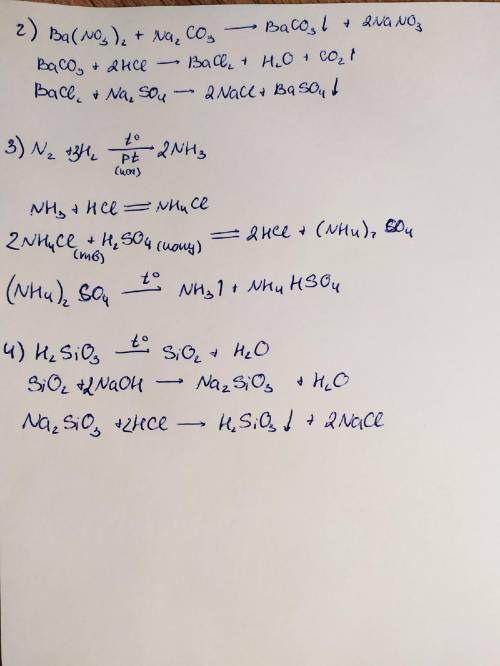 2) Ba(NO₃)₂ + Na₂CO₃ → BaCO₃↓ + 2NaNO₃
BaCO₃ + 2HCl → BaCl₂ + H₂O + CO₂↑
BaCl₂ + Na₂SO₄ → 2NaCl + BaSO₄↓
3) N₂ + 3H₂ t° → Pt 2NH₃
NH₃ + HCl = NH₄Cl
2NH₄Cl (тв) + H₂SO₄ (конц) = 2HCl + (NH₄)₂SO₄
(NH₄)₂SO₄ t° — NH₃↑ + NH₄HSO₄
4) H₂SiO₃ t° — SiO₂ + H₂O
SiO₂ + 2NaOH → Na₂SiO₃ + H₂O
Na₂SiO₃ + 2HCl → H₂SiO₃↓ + 2NaCl